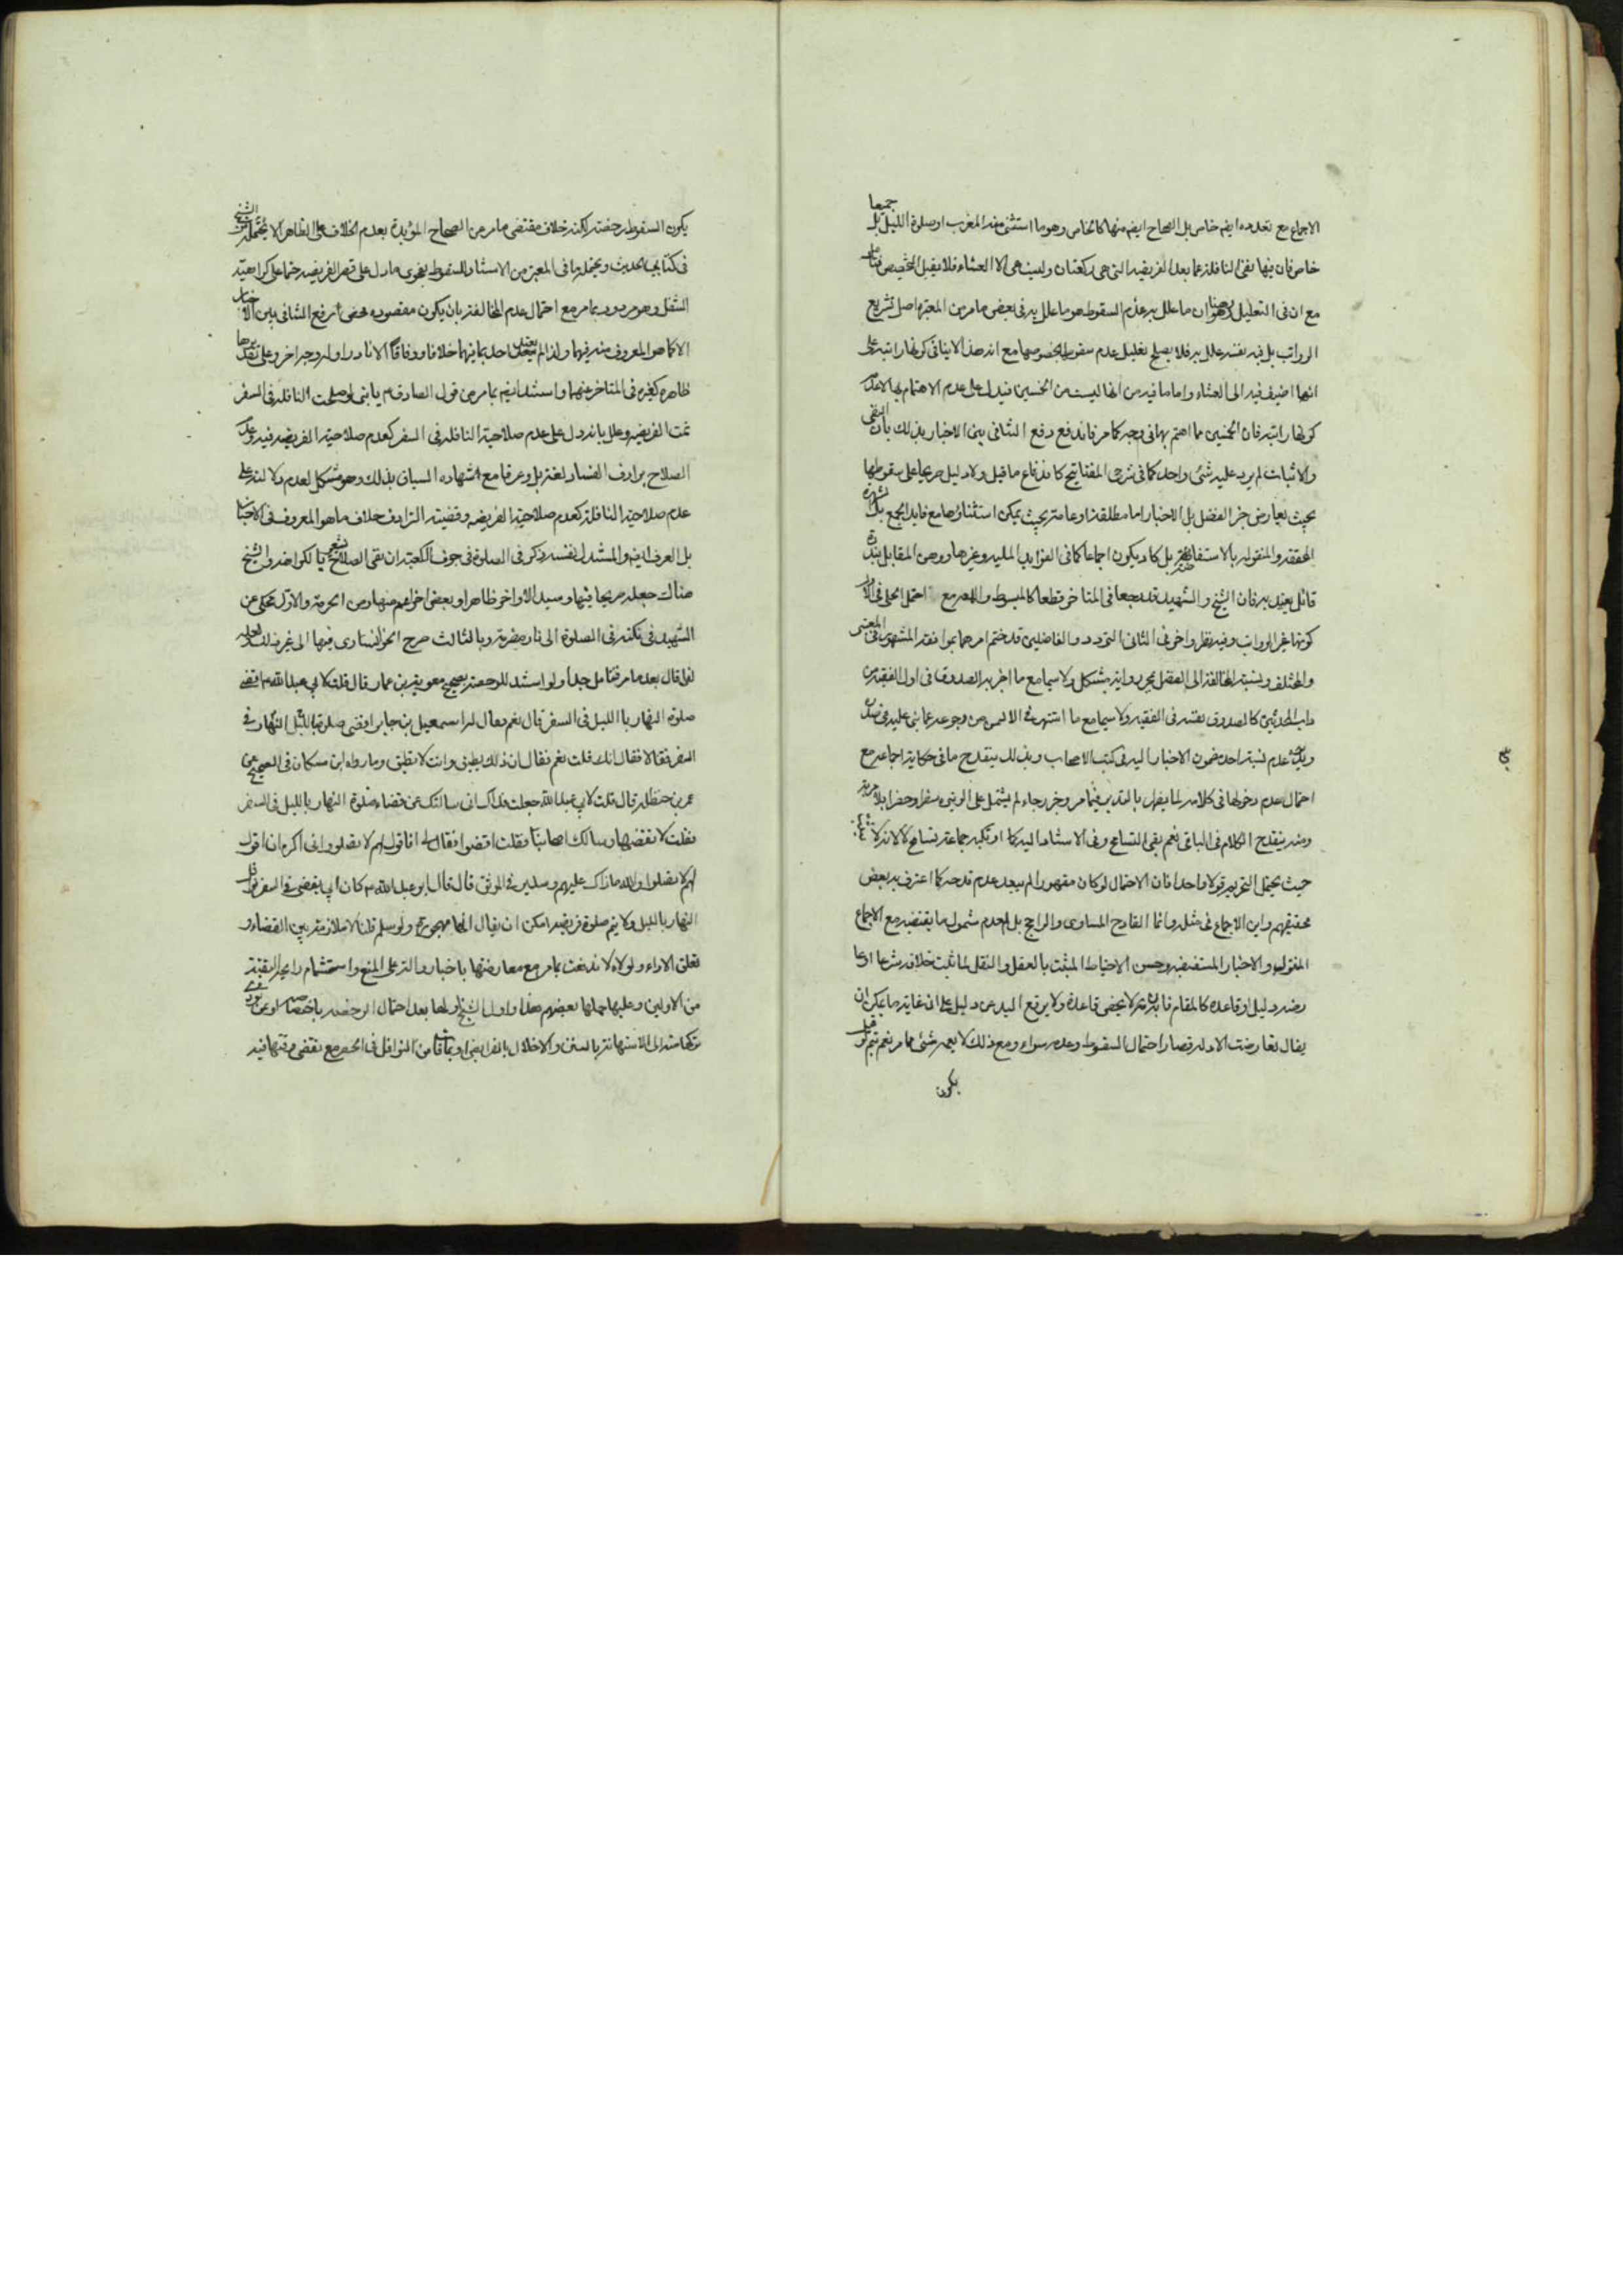 الاجماع مع تعدده ايضم خاص بل الصحاح ايضم منها كالخاص وهو ما استثنى منه المغرب او صلوة الليل بل جمعا
خاص فان فيها نفى النافلة عما بعد الفريضه التى هى ركعتان وليست هى الا العشاء فلا يقبل التخصيص فتامل
مع ان فى التعليل وهنا ان ما علل به عدم السقوط هو ما علل به فى بعض ما مر من المعتبرة اصل تشريع
الرواتب بل فيه نفسه علل به فلا يصلح تعليل عدم سقوط خصوصها مع انه هذا لا ينافى كونها راتبه على
انها اضيف فيه الى العشاء واما ما فيه من انها ليست من الخمسين فيدل على عدم الاهتمام بها لا عدم
كونها راتبه فان الخمسين مما اهتم بها فى وجه كما مر فاندفع دفع التنافى بين الاخبار بذلك بان النفى
والاثبات لم يرد عليه شئ واحد كما فى شرح المفاتيح كاندفاع ما قيل ولا دليل صريحا على سقوطها
بحيث يعارض خبر الفضل بل الاخبار اما مطلقة او عامة بحيث يمكن استثناؤها مع تاييد الجمع بالشهرة
المحققه والمنقوله بالاستفاضه بل كاد يكون اجماعا كما فى الفوايد المليه وغيرها ووهن المقابل بندرة
قائل يعتد به فان الشيخ والشهيد قد رجعا فى المتاخر قطعا كالمبسوط و مع احتمل الحلى فى الاول
كونها غير الرواتب وفيه نظر واخر فى الثانى التردد والفاضلين قد ختم امرهما بموافقه المشهور فى المعتبر
والمختلف ونسبة المخالفة الى الفضل بمجرد روايته مشكل ولا سيما مع ما اخبر به الصدوق فى اول الفقيه من
داب المحدثين كالصدوق نفسه فى الفقيه ولا سيما مع ما اشتهر فى الالسن من رجوعه عما بنى عليه فى صدره
ويؤيده عدم نسبة احد مضمون الاخبار اليه فى كتب الاصحاب وبذلك ينقدح ما فى حكاية اجماعه مع
احتمال عدم دخولها فى كلامه لما يظهر بالتدبر فيما مر وخبر رجاء لم يشتمل على الوتيره سفرا وحضرا بلا مرية
ومنه ينقدح الكلام فى الباقى نعم بقى التسامح وفى الاستناد اليه كما ارتكبه جماعة تسامح لا لانه لا
حيث يحتمل التحريم قولا واحدا فان الاحتمال لو كان مقهورا لم يبعد عدم قدحه كما اعترف به بعض
محققيهم واين الاجماع فى مثله وانما القادح المساوى والراجح بل لعدم شمول ما يقتضيه مع الاجماع
المنقول والاخبار المستفيضه وحسن الاحتياط المثبت بالعقل والنقل لما ثبت خلافه شرعا او ما
رضه دليل او قاعده كالمقام فانه لا يخص قاعدة ولا يرفع اليد عن دليل على ان غاية ما يمكن ان
يقال تعارضت الادله فصار احتمال السقوط وعدمه سواء ومع ذلك لا يعمه شئ مما مر نعم تتم لو قيل
يكون
يكون السقوط رخصة لكنه خلاف مقتضى ما مر من الصحاح المؤيدة بعدم الخلاف على الظاهر الا يحتمله الشيخ
فى كتابى الحديث ويحتمله ما فى المعتبر من الاستناد للسقوط بفحوى ما دل على قصر الفريضه حتما على كراهية
التنفل وهو مردود بما مر مع احتمال عدم المخالفة بان يكون مقصوده محض رفع التنافى بين الاخبار
الا كما هو المعروف منه فيهما ولذا لم يعتد احد بما فيهما خلافا ووفاقا الا نادرا ولوجه اخر وعلى تقدير
ظاهره كغيره فى المتاخر عنهما واستند ايضم بما مر من قول الصادق م يا بنى لو صلحت النافله فى السفر
تمت الفريضه وعلل بانه دل على عدم صلاحية النافله فى السفر كعدم صلاحية الفريضه فيه وعدم
الصلاح يرادف الفساد لغة بل وعرفا مع اشهاده السياق بذلك وهو مشكل لعدم دلالته على
عدم صلاحية النافلة كعدم صلاحية الفريضه وقضيته الترادف خلاف ما هو المعروف فى الاخبار
بل العرف ايضم والمستدل نفسه ذكر فى الصلوة فى جوف الكعبة ان نفى الصلاح يشعر بالكراهه والشيخ
هناك جعله صريحا فيها وسيد الاواخر ظاهرا وبعض اخر اعم منها ومن الحرمة والاول محكى عن
الشهيد فى نكته فى الصلوة الى نار مضرمة وبالثالث صرح الخوانسارى فيها الى غير ذلك ولعله
لذا قال بعد ما مر فتامل جدا ولو استند للرخصة بصحيح معوية بن عمار قال قلت لابى عبد الله م اقضى
صلوة النهار با الليل فى السفر قال نعم فقال له اسمعيل بن جابر اقضى صلوة النهار بالليل فى
السفر فقال لا فقال انك قلت نعم فقال ان ذلك يطيق وانت لا تطيق وما رواه ابن مسكان فى الصحيح عن
عمر بن حنظله قال قلت لابى عبد الله جعلت فداك انى سالتك عن قضاء صلوة النهار بالليل فى السفر
فقلت لا تقضها وسالك اصحابنا فقلت اقضوا فقال لى افاقول لهم لا تصلوا وانى اكره ان اقول
لهم لا تصلوا والله ما ذاك عليهم وسدير فى الموثق قال قال ابو عبد الله م كان ابى يقضى فى السفر نوافل
النهار بالليل ولا يتم صلوة فريضه امكن ان يقال انها مهجورة ولو سلم قلنا لا ملازمة بين القضاء و
تعلق الاداء ولولاه لاندفعت بما مر مع معارضتها باخبار دالة على المنع واستشمام رايحة التقية
من الاولين وعليها حملها بعضهم هذا واول الشيخ اولها بعد احتمال الرخصه باختصاصه بمن
تركها مسندا الى الاستهانة بالسنن والاخلال بالفرايض او بما فات من النوافل فى الحضر مع تقضى وقتها فيه